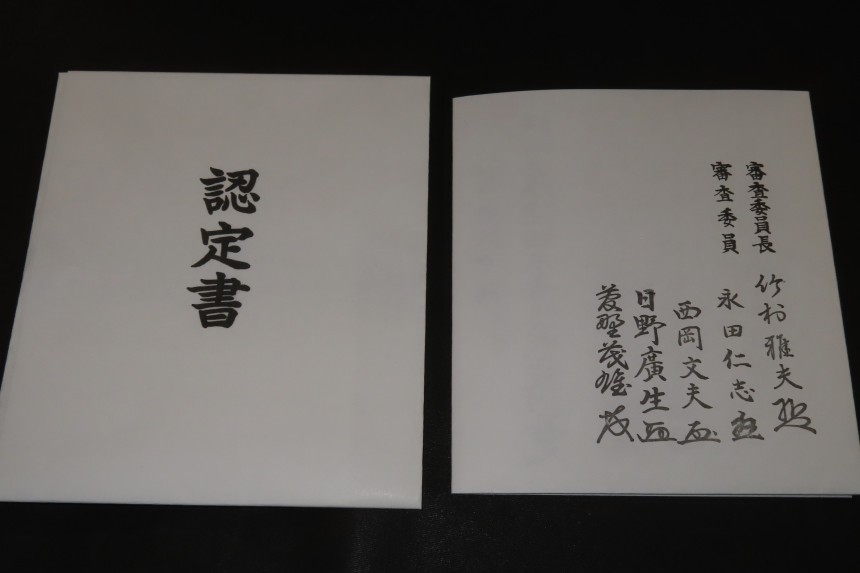 認定書
審査委員長 竹村雅夫
審査委員 永田仁志
西岡文夫
日野廣生
菱野茂雄